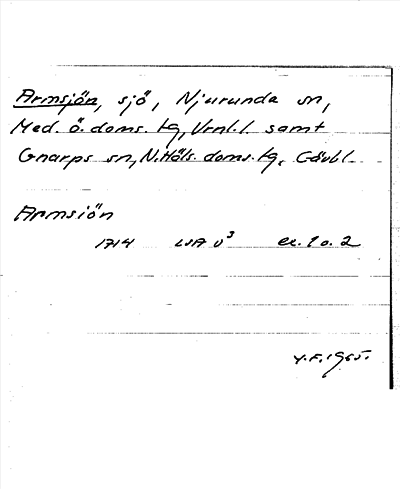 Armsjön, sjö, Njurunda sn,
Med. ö. doms. tg, Vrnl. l. samt
Gnarps sn, N. Häls. doms. tg, Gävl. l.
Armsiön
1714 LSA U³ ex. 1 o. 2
Y.F. 1965.